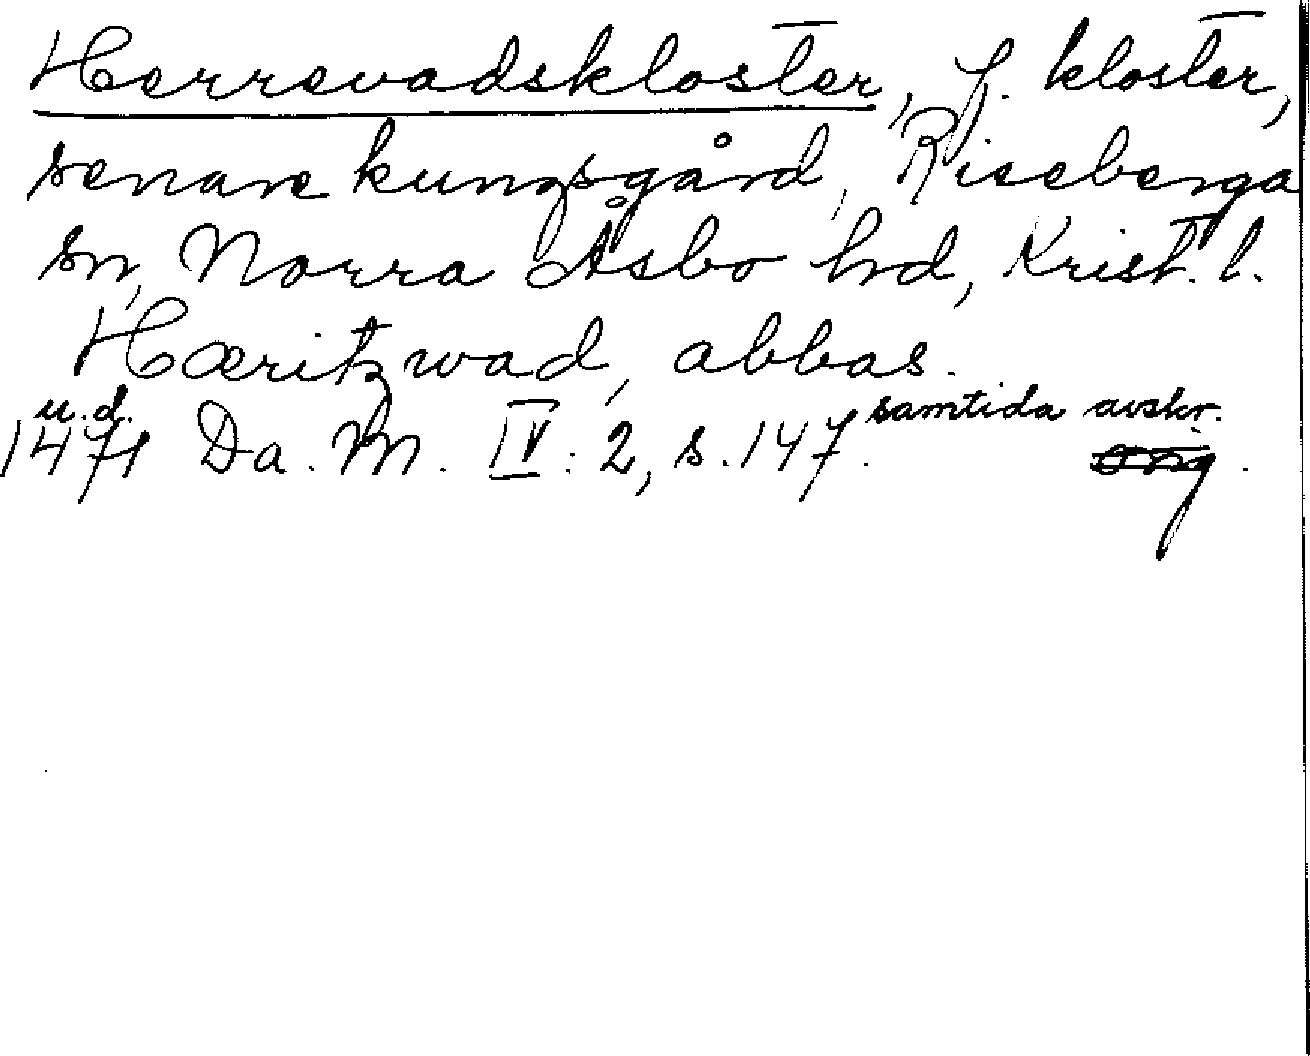 Herrevadskloster, f. kloster,
senare kungsgård, Riseberga
sn, Norra Åsbo hd, Krist. l.
Hæritzwad, abbas.
u.d. samtida avskr.
1471 Da. M. IV: 2, s. 147. orig.